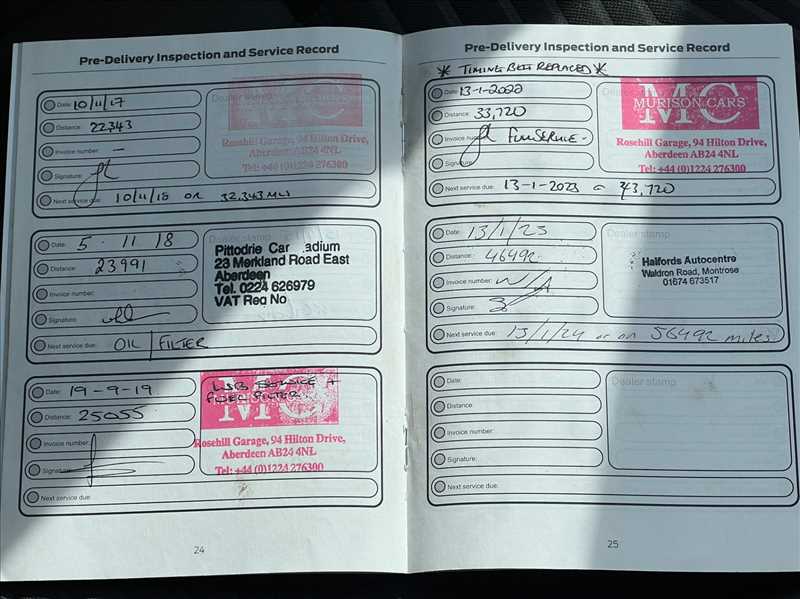 Pre-Delivery Inspection and Service Record
Date: 10/11/17
Distance: 22343
Invoice number: -
Signature:
Next service due: 10/11/18 OR 32,343 MLS
Dealer stamp
MC
MURISON CARS
Rosehill Garage, 94 Hilton Drive,
Aberdeen AB24 4NL
Tel: +44 (0)1224 276300
Date: 5 . 11 18
Distance: 23991
Invoice number:
Signature:
Next service due: OIL / FILTER
Dealer stamp
Pittodrie Car adium
23 Merkland Road East
Aberdeen
Tel. 0224 626979
VAT Reg No
Date: 19-9-19
Distance: 25055
Invoice number:
Signature:
Next service due:
SERVICE +
FUEL FILTER.
MC
Rosehill Garage, 94 Hilton Drive,
Aberdeen AB24 4NL
Tel: +44 (0)1224 276300
24
Pre-Delivery Inspection and Service Record
* TIMING BELT REPLACED *
Date: 13-1-2022
Distance: 33,720
Invoice number: FULL SERVICE -
Signature:
Next service due: 13-1-2023 or 43,720
Dealer stamp
MC
MURISON CARS
Rosehill Garage, 94 Hilton Drive,
Aberdeen AB24 4NL
Tel: +44 (0)1224 276300
Date: 13/1/23
Distance: 46492
Invoice number: N/A
Signature:
Next service due: 13/1/24 or on 56492 miles
Dealer stamp
Halfords Autocentre
Waldron Road, Montrose
01674 673517
Date:
Distance:
Invoice number:
Signature:
Next service due:
Dealer stamp
25